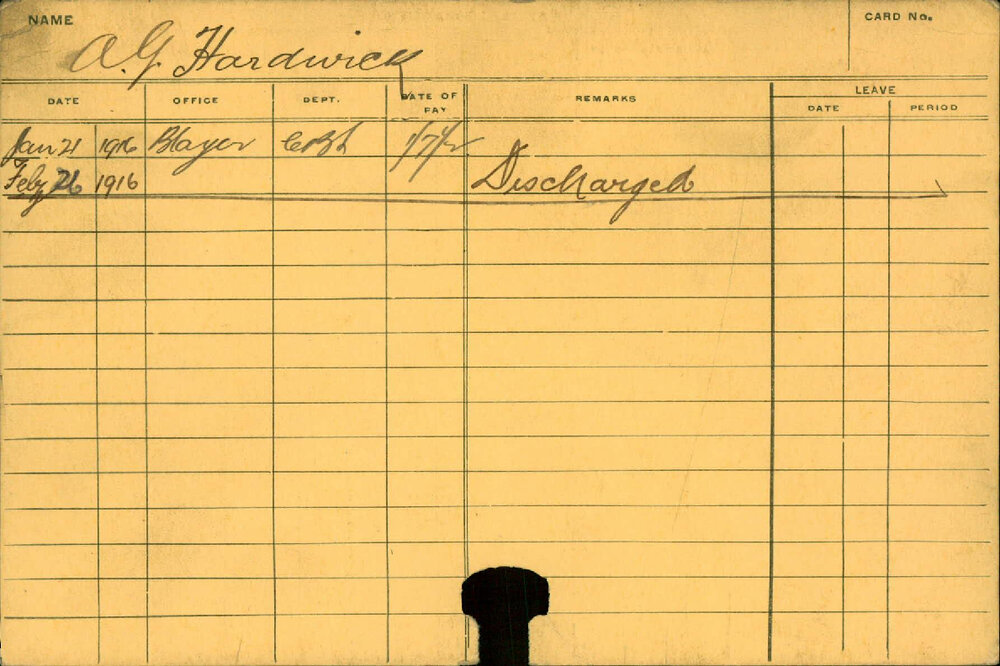 NAME
A. G. Hardwick
CARD No.
DATE OFFICE DEPT. RATE OF PAY REMARKS LEAVE
DATE PERIOD
Jan 21 1916 1/7/2
Feby 26 1916 Discharged